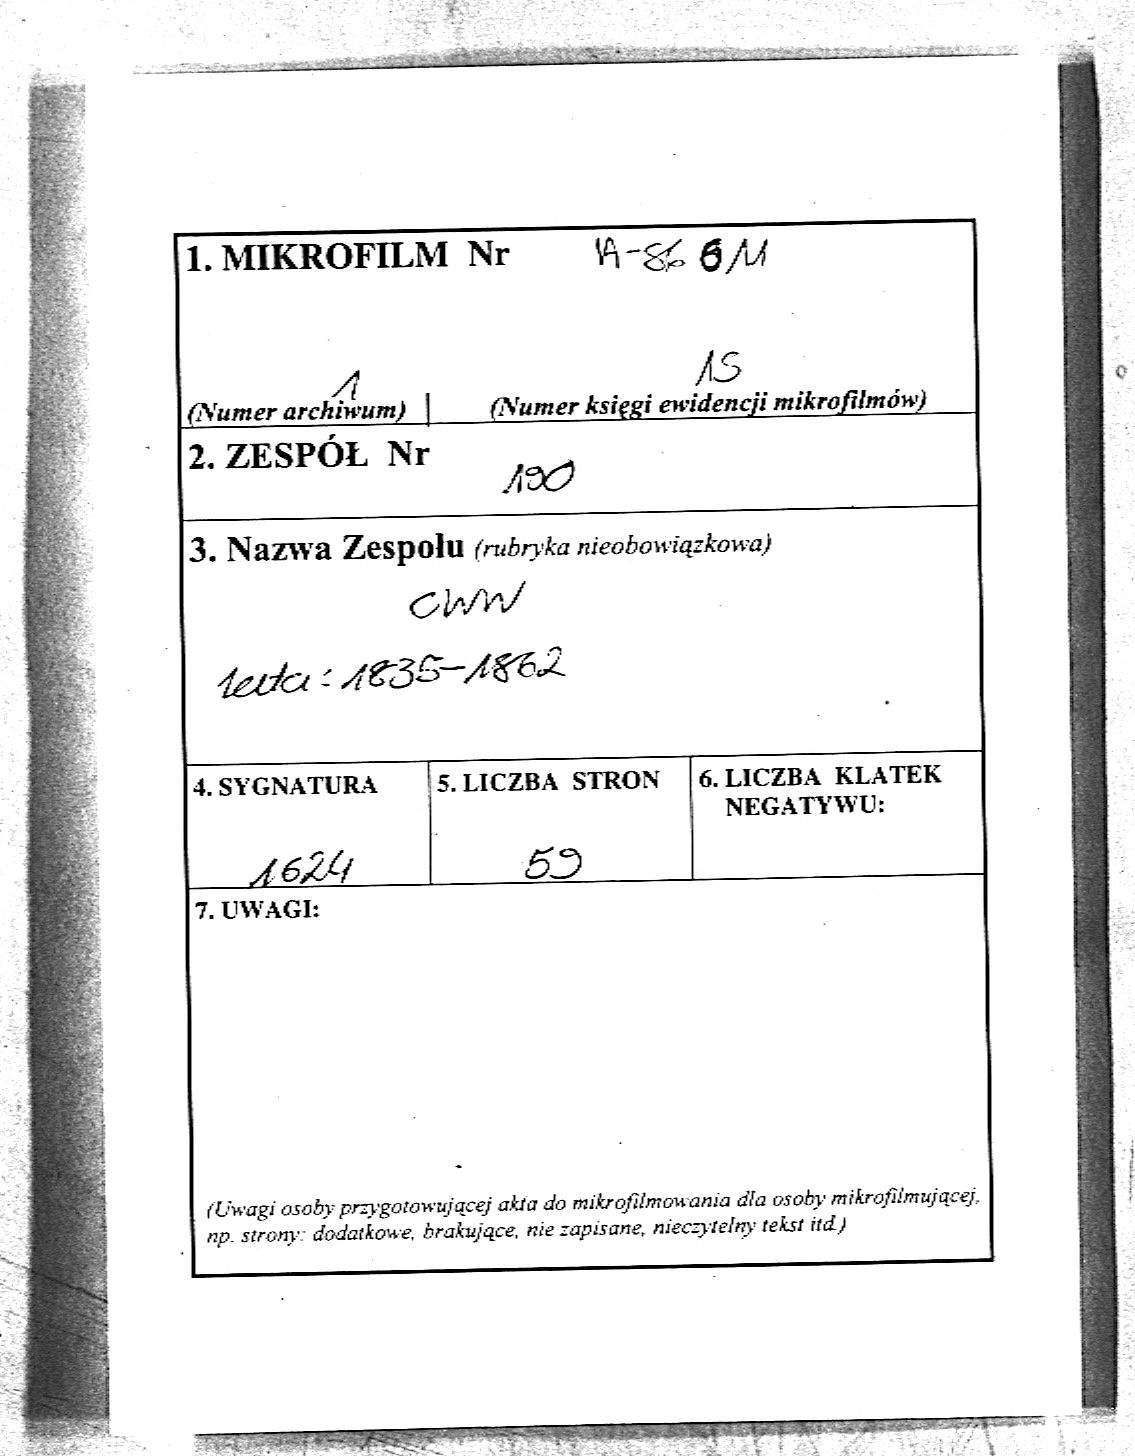 1. MIKROFILM Nr 1A-866/M
1 15
(Numer archiwum) | (Numer księgi ewidencji mikrofilmów)
2. ZESPÓŁ Nr
190
3. Nazwa Zespołu (rubryka nieobowiązkowa)
CWW
lata: 1835-1862
4. SYGNATURA 5. LICZBA STRON 6. LICZBA KLATEK
NEGATYWU:
1624 59
7. UWAGI:
(Uwagi osoby przygotowującej akta do mikrofilmowania dla osoby mikrofilmującej,
np. strony: dodatkowe, brakujące, nie zapisane, nieczytelny tekst itd.)